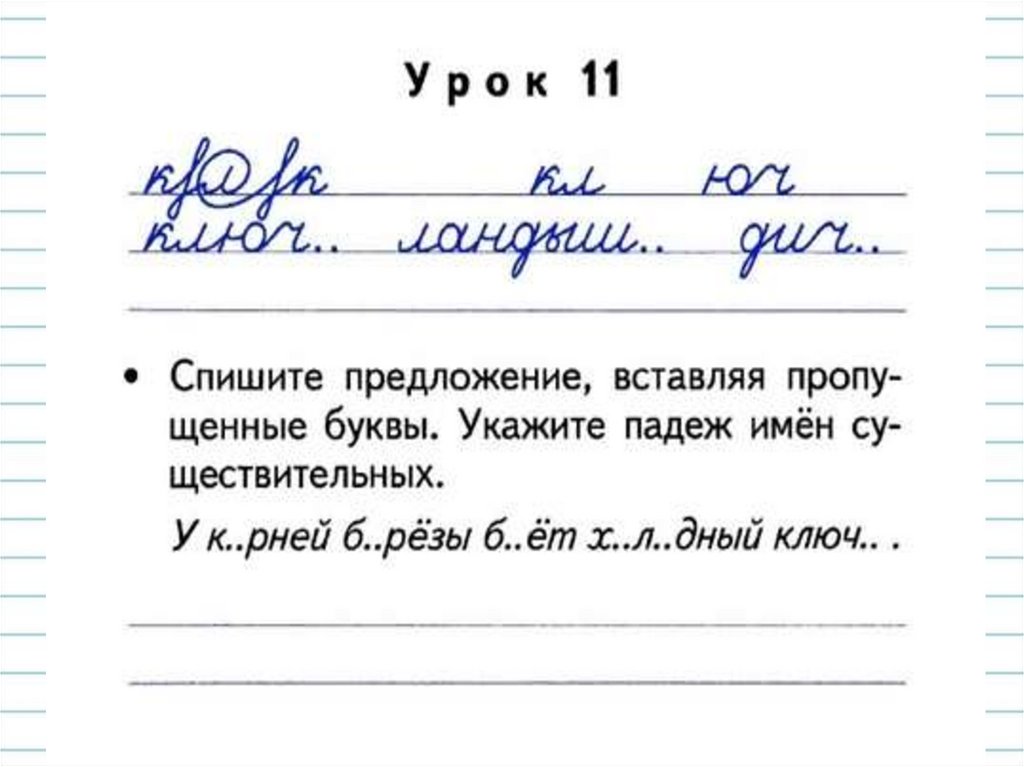 Урок 11
кл юч
ключ.. ландыш.. дич..
• Спишите предложение, вставляя пропу-
щенные буквы. Укажите падеж имён су-
ществительных.
У к..рней б..рёзы б..ёт х..л..дный ключ.. .